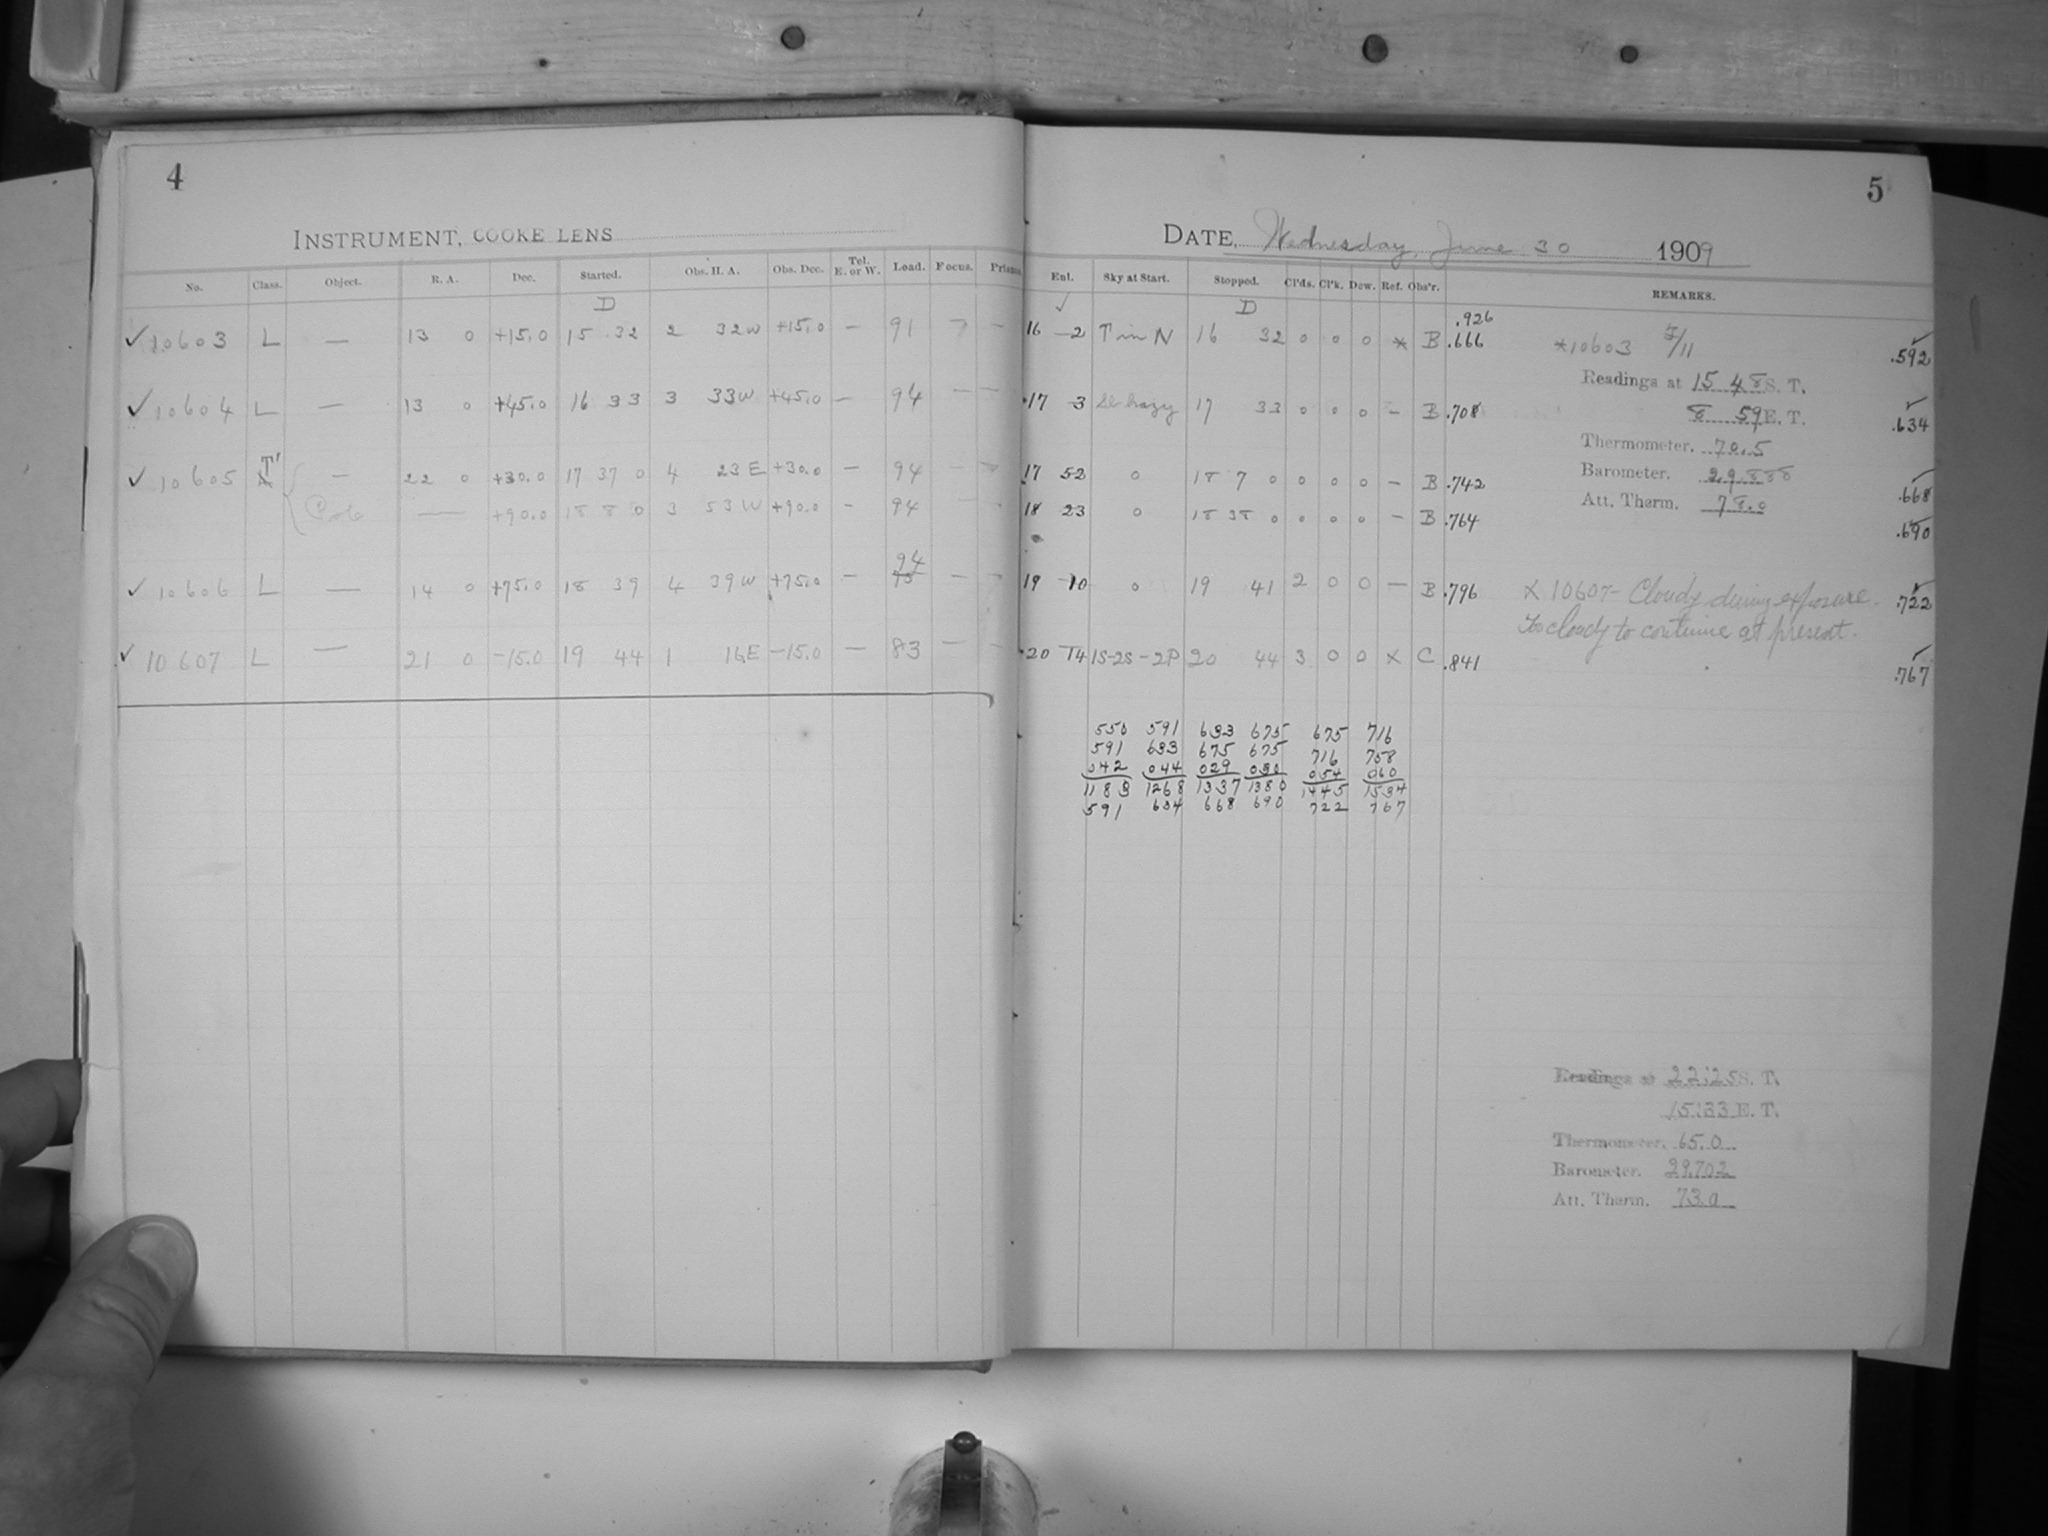 4
INSTRUMENT, COOKE LENS
No. Class. Object. R. A. Dec. Started. Obs. H. A. Obs. Dec. Tel. E. or W. Load. Focus. Prisms
D
✓ 10603 L — 13 0 +15.0 15 32 2 32W +15.0 — 91 —
✓ 10604 L — 13 0 +45.0 16 33 3 33W +45.0 — 94 — —
✓ 10605 T' — 22 0 +30.0 17 37 0 4 23E +30.0 — 94 — —
Pole — +90.0 18 8 0 3 53W +90.0 - 94 — -
94
✓ 10606 L — 14 0 +75.0 18 39 4 39W +75.0 — — -
✓ 10607 L — 21 0 -15.0 19 44 1 16E -15.0 — 83 — —
5
DATE, Wednesday, June 30 1909
Ent. Sky at Start. Stopped. Cl'ds. Cl'k. Dew. Ref. Obs'r. REMARKS.
✓ D
.926
16 2 T in N 16 32 0 0 0 * B .666 *10603 .592
17 3 Sl. hazy 17 33 0 0 0 - B .708 .634
17 52 0 18 7 0 0 0 0 - B .742 .668
18 23 0 18 38 0 0 0 0 - B .764 .690
19 10 0 19 41 2 0 0 — B .796 .722
20 14 1S-2S-2P 20 44 3 0 0 X C .841 .767
Readings at 15 48 S. T.
8 59 E. T.
Thermometer. 70.5
Barometer. 29.888
Att. Therm. 78.0
X 10607- Cloudy during exposure.
Too cloudy to continue at present.
550 591 633 675 675 716
591 633 675 675 716 758
042 044 029 030 054 060
1183 1268 1337 1380 1445 1534
591 634 668 690 722 767
Readings at 22:25 S. T.
15:33 E. T.
Thermometer. 65.0
Barometer. 29.702
Att. Therm. 73.0